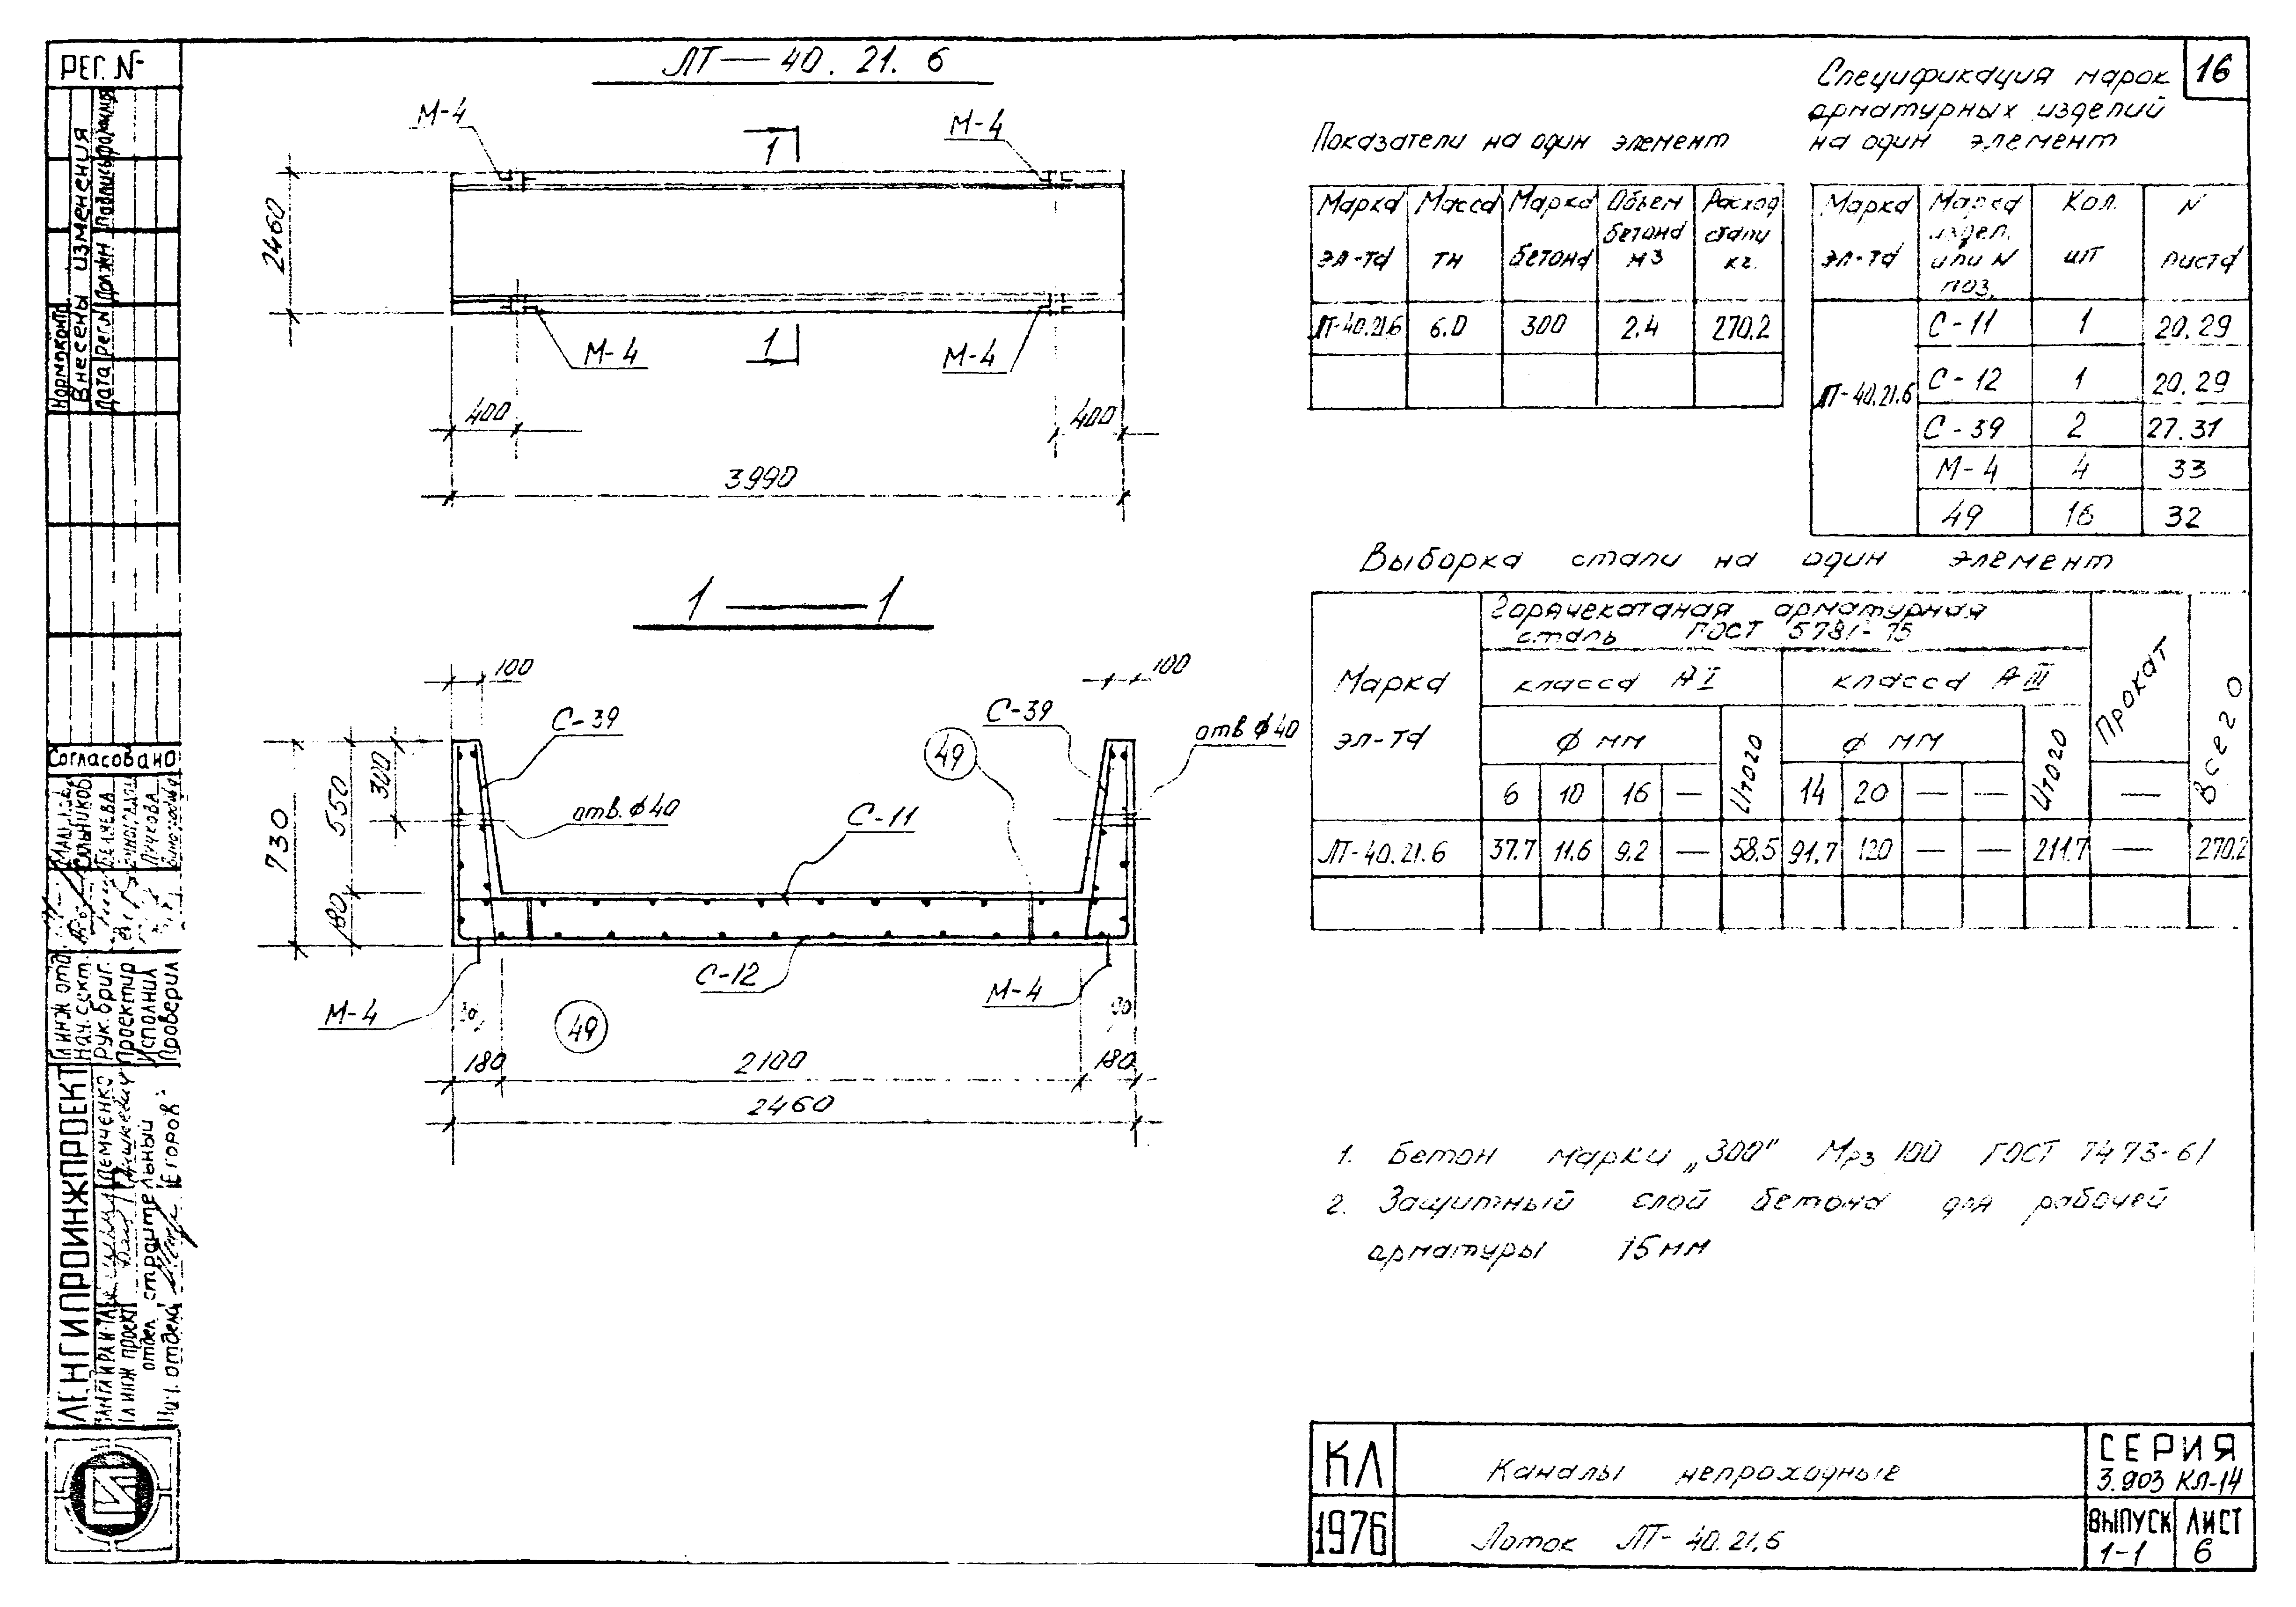 ЛТ — 40. 21. 6
16
М-4
М-4
1
2460
1
М-4
М-4
400
400
3990
1 — 1
100
100
С-39
С-39
49
отв ф40
отв. ф40
С-11
730
550
300
180
С-12
М-4
М-4
90
90
49
180
2100
180
2460
Показатели на один элемент
Марка эл-та
Масса тн
Марка бетона
Объем бетона м3
Расход стали кг.
ЛТ-40.21.6 6.0 300 2.4 270.2
Спецификация марок
арматурных изделий
на один элемент
Марка эл-та
Марка издел. или N поз.
Кол. шт
N листа
ЛТ-40.21.6
С-11 1 20.29
С-12 1 20.29
С-39 2 27.31
М-4 4 33
49 16 32
Выборка стали на один элемент
Марка эл-та
Горячекатаная арматурная
сталь ГОСТ 5781-75
класса А I
класса А III
Прокат
Всего
ф мм
Итого
ф мм
Итого
6 10 16 —
14 20 — — —
ЛТ-40.21.6 37.7 11.6 9.2 — 58.5 91.7 120 — — 211.7 — 270.2
1. Бетон марки „300" Мрз 100 ГОСТ 7473-61
2. Защитный слой бетона для рабочей
арматуры 15мм
КЛ
Каналы непроходные
СЕРИЯ
3.903 КЛ-14
1976
Лоток ЛТ- 40.21.6
ВЫПУСК
1-1
ЛИСТ
6
РЕГ. №
Внесены изменения
Дата Рег.N Должн Подпись Фамилия
Нормоконтр
Согласовано
Нач. сект.
Рук. бриг.
Проектир
Исполнил
Проверил
Пучкова
ЛЕНГИПРОИНЖПРОЕКТ
Демченко
Гл инж проект
отдел строительный
Нач. отдела
Егоров